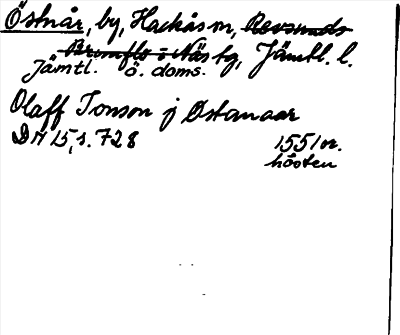 Östnår, by, Hackås sn, Revsunds
Brunflo o. Näs tg, Jämtl. l.
Jämtl. ö. doms.
Olaff Jonson j Østanaar
DN 15, s. 728 1551 or.
hösten